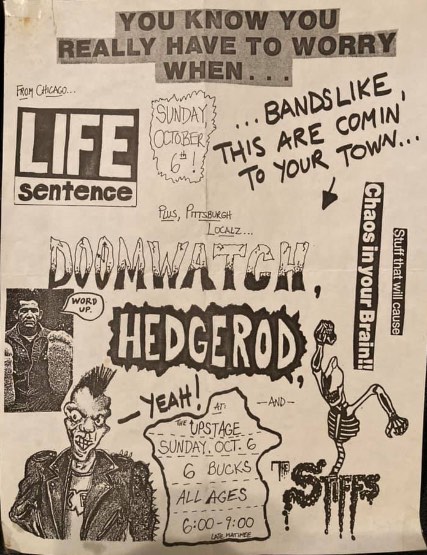 YOU KNOW YOU
REALLY HAVE TO WORRY
WHEN...
FROM CHICAGO...
LIFE
sentence
SUNDAY,
OCTOBER
6th!
...BANDS LIKE,
THIS ARE COMIN'
TO YOUR TOWN...
PLUS, PITTSBURGH
LOCALZ...
DOOMWATCH,
HEDGEROD,
Stuff that will cause
Chaos in your Brain!!
WORD
UP.
YEAH!
-AND-
THE STIFFS
AT:
THE UPSTAGE
SUNDAY, OCT. 6
6 BUCKS
ALL AGES
6:00-9:00
LATE MATINEE